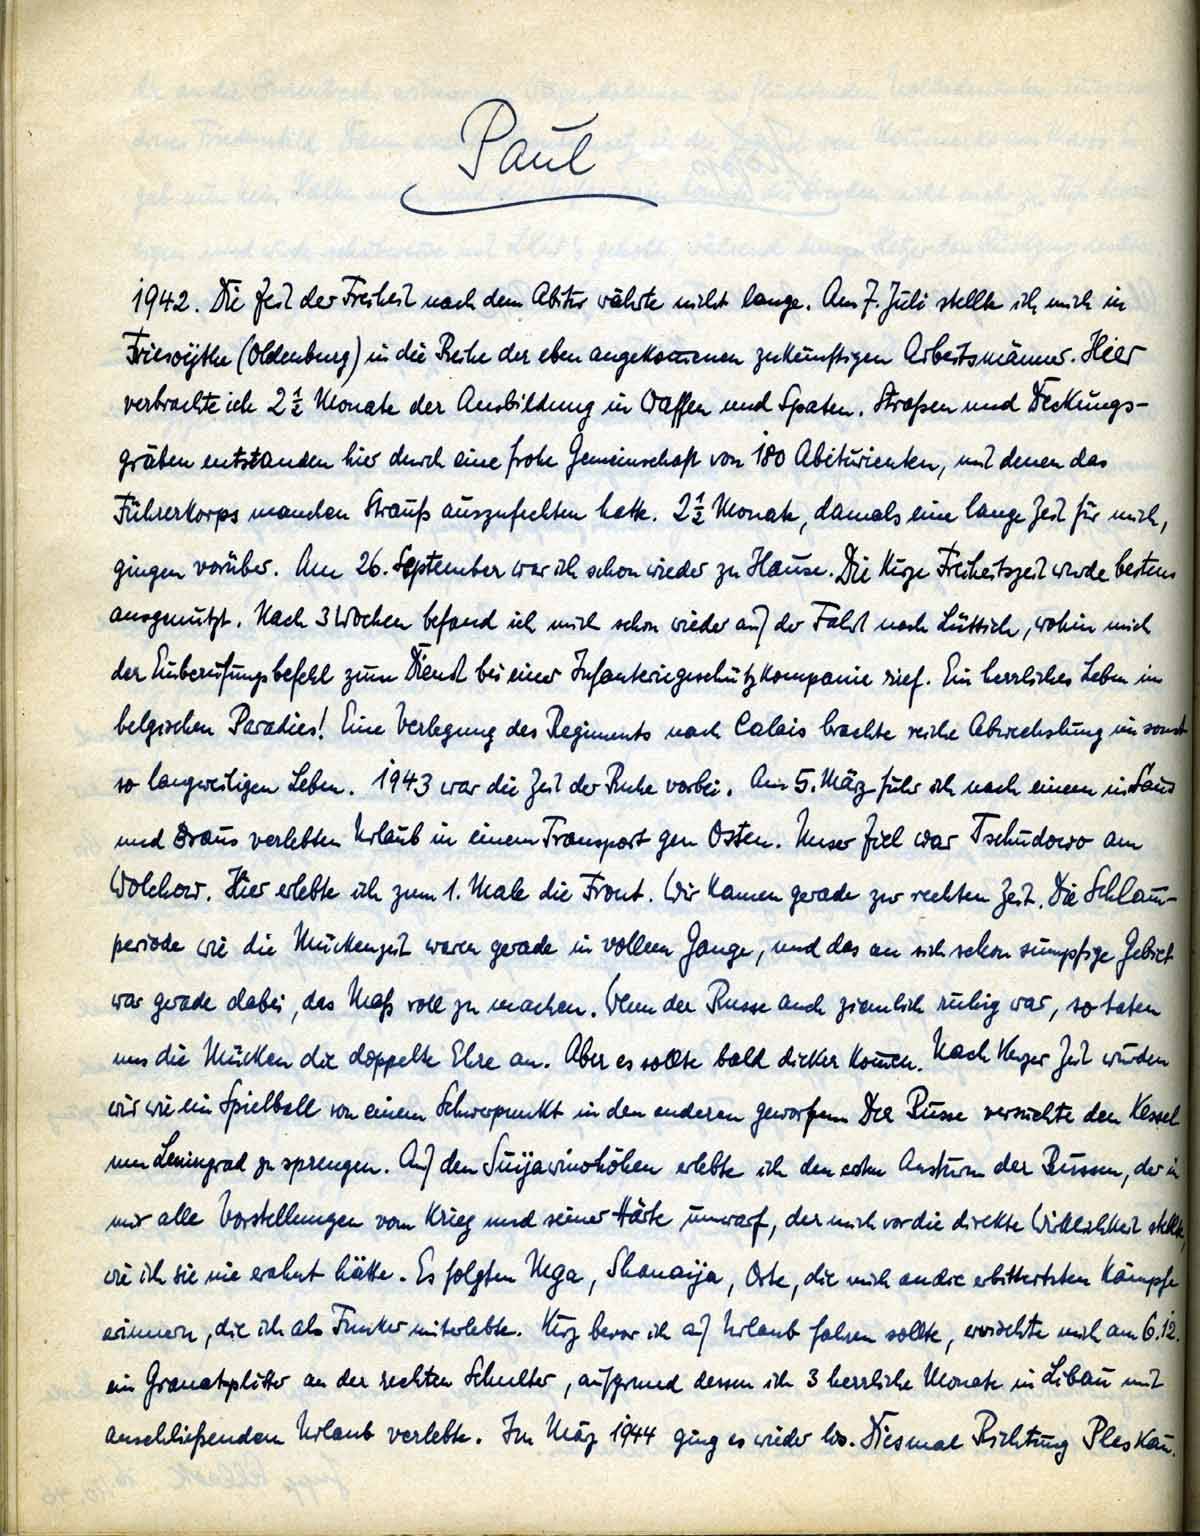 Paul
1942. Die Zeit der Freiheit nach dem Abitur währte nicht lange. Am 7. Juli stellte ich mich in
Friesoythe (Oldenburg) in die Reihe der eben angekommenen zukünftigen Arbeitsmänner. Hier
verbrachte ich 2 ½ Monate der Ausbildung in Waffen und Spaten. Straßen und Deckungs-
gräben entstanden hier durch eine frohe Gemeinschaft von 180 Abiturienten, mit denen das
Führerkorps manchen Strauß auszufechten hatte. 2 ½ Monate, damals eine lange Zeit für mich,
gingen vorüber. Am 26. September war ich schon wieder zu Hause. Die kurze Freiheitszeit wurde bestens
ausgenutzt. Nach 3 Wochen befand ich mich schon wieder auf der Fahrt nach Lüttich, wohin mich
der Einberufungsbefehl zum Dienst bei einer Infanteriegeschützkompanie rief. Ein herrliches Leben im
belgischen Paradies! Eine Verlegung des Regiments nach Calais brachte reiche Abwechslung im sonst
so langweiligen Leben. 1943 war die Zeit der Ruhe vorbei. Am 5. März fuhr ich nach einem in Saus
und Braus verlebten Urlaub in einem Transport gen Osten. Unser Ziel war Tschudowo am
Wolchow. Hier erlebte ich zum 1. Male die Front. Wir kamen gerade zur rechten Zeit. Die Schlamm-
periode wie die Mückenzeit waren gerade in vollem Gange, und das an sich schon sumpfige Gebiet
war gerade dabei, das Maß voll zu machen. Wenn der Russe auch ziemlich ruhig war, so taten
uns die Mücken die doppelte Ehre an. Aber es sollte bald dicker kommen. Nach kurzer Zeit wurden
wir wie ein Spielball von einem Schwerpunkt in den anderen geworfen. Der Russe versuchte den Kessel
um Leningrad zu sprengen. Auf den Sinjawinohöhen erlebte ich den ersten Ansturm der Russen, der in
mir alle Vorstellungen vom Krieg und seiner Härte umwarf, der mich vor die direkte Wirklichkeit stellte,
wie ich sie nie erahnt hätte. Es folgten Mga, Orte, die mich an die erbittertsten Kämpfe
erinnern, die ich als Funker miterlebte. Kurz bevor ich auf Urlaub fahren sollte, erwischte mich am 6.12.
ein Granatsplitter an der rechten Schulter, aufgrund dessen ich 3 herrliche Monate in Libau mit
anschließendem Urlaub verlebte. Im März 1944 ging es wieder los. Diesmal Richtung Pleskau.